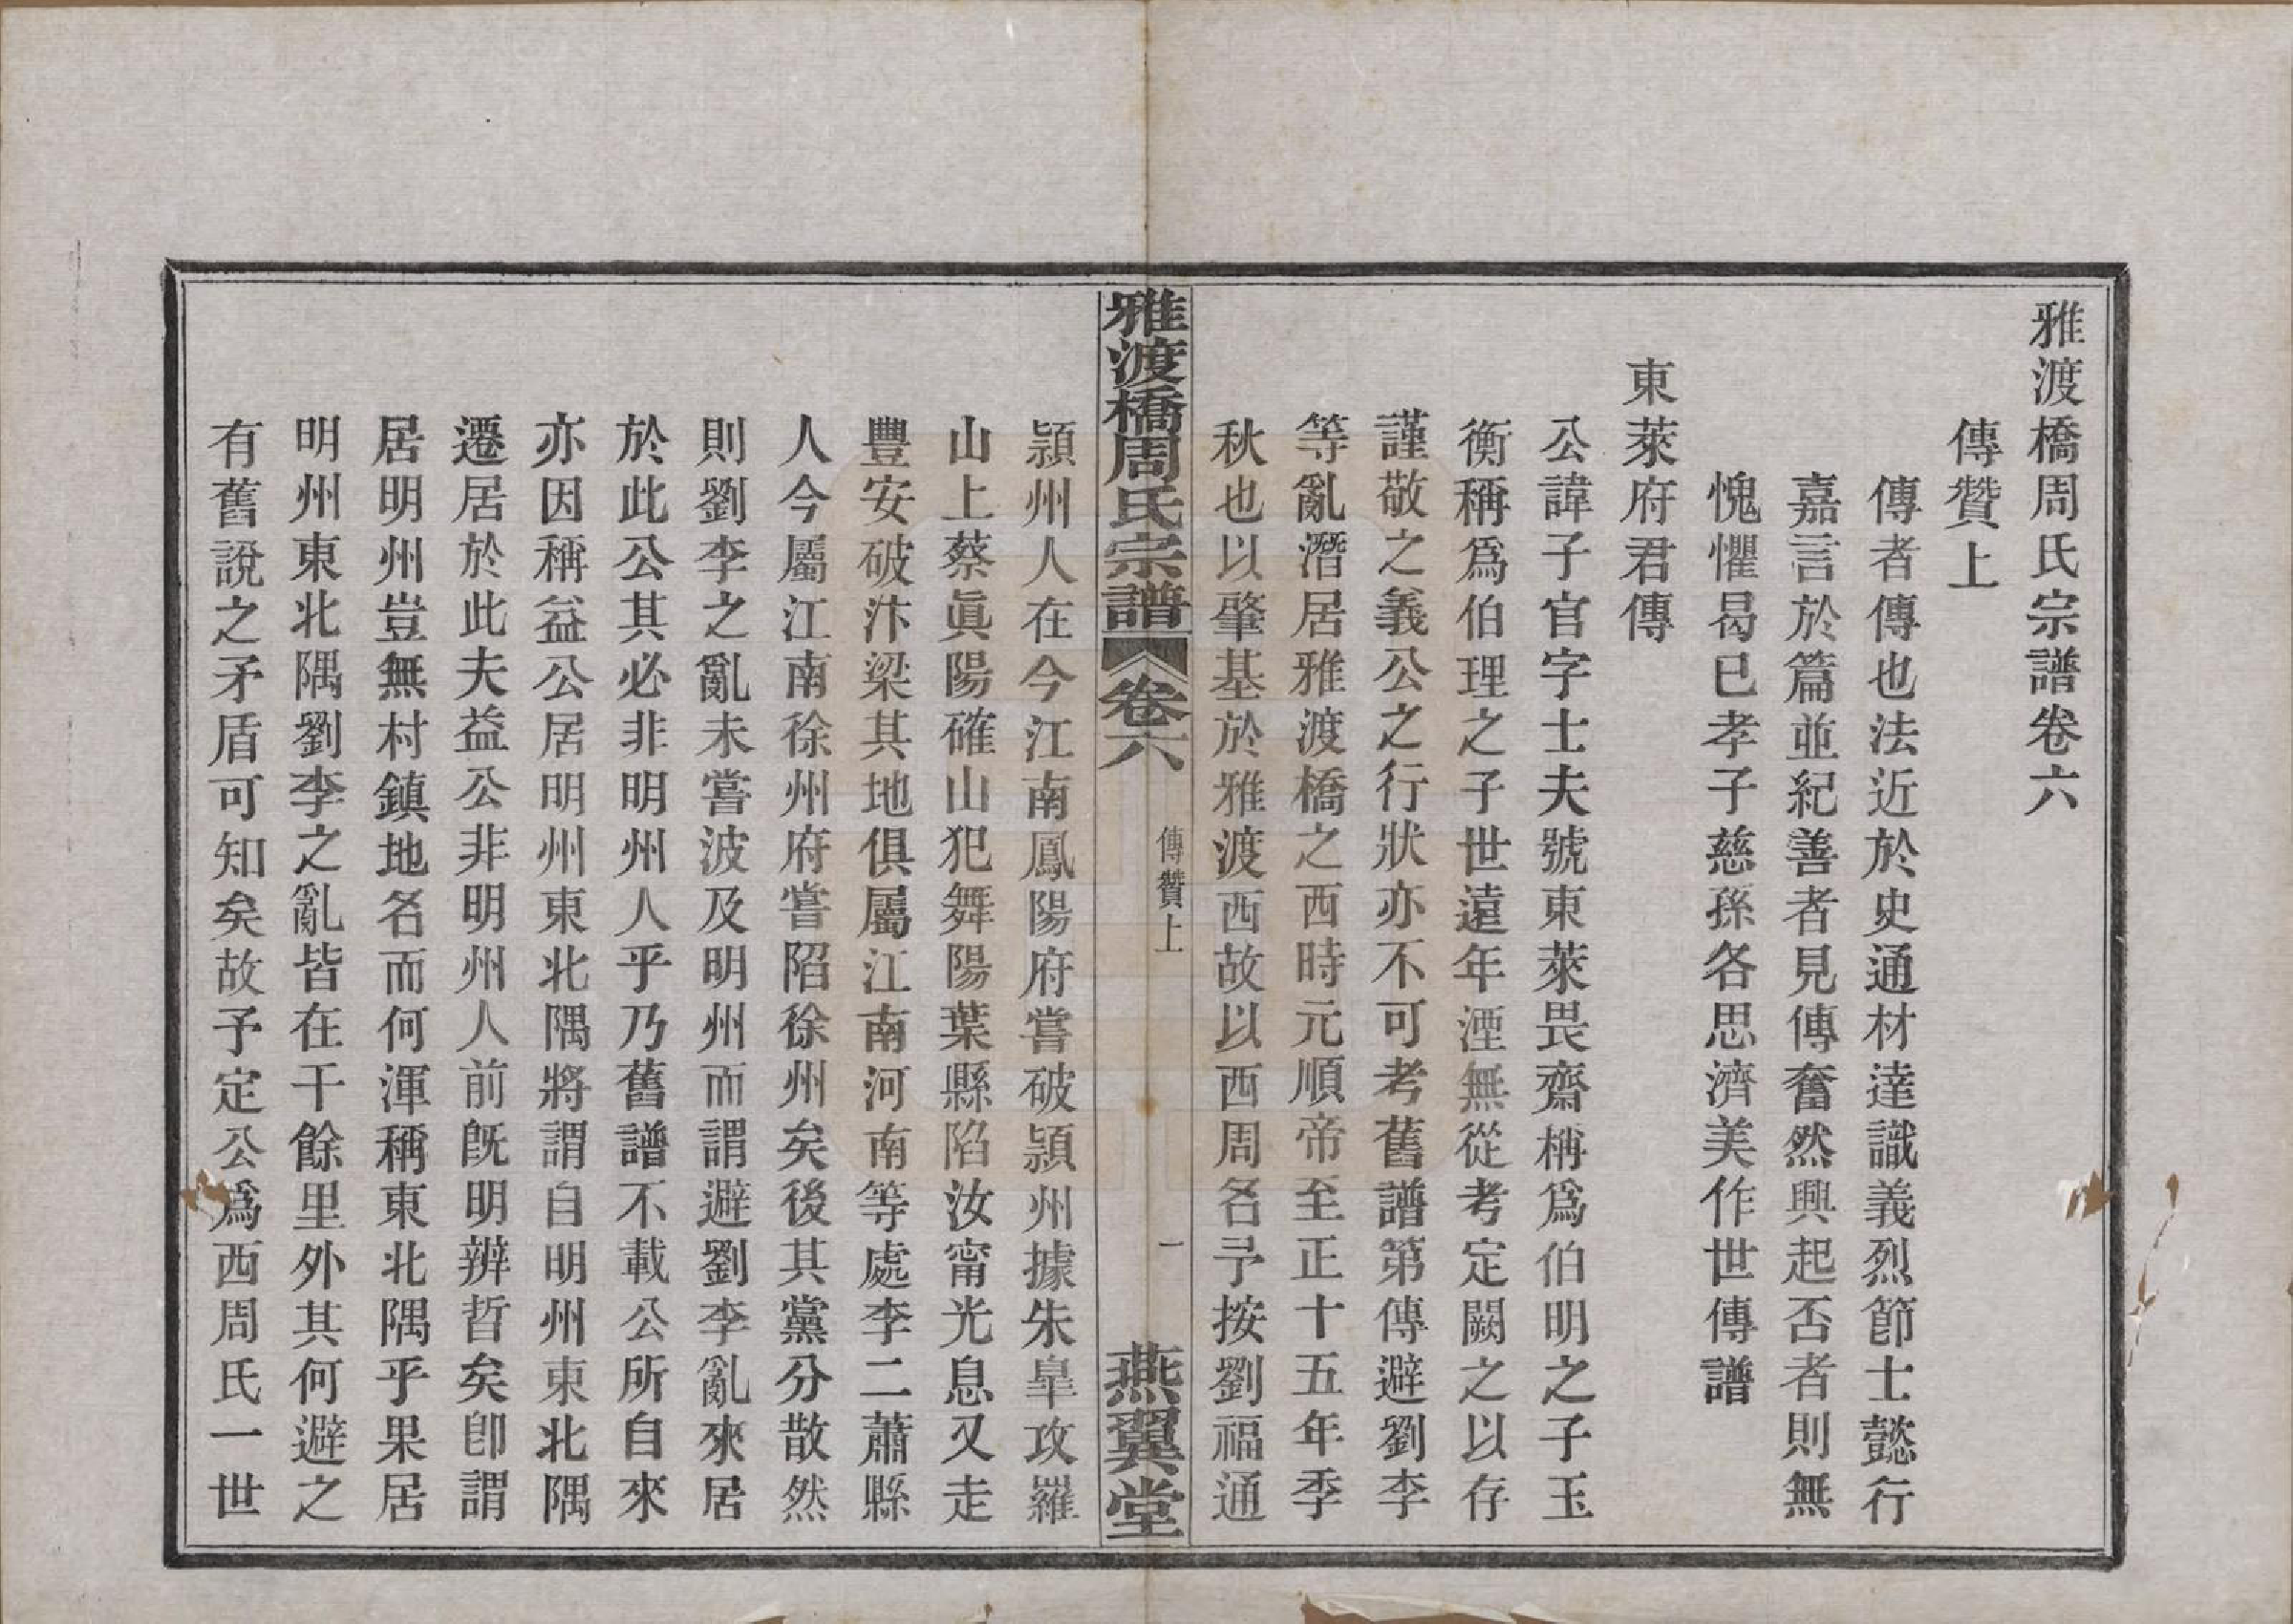 雅渡橋周氏宗譜卷六
傳贊上
傳者傳也法近於史通材達識義烈節士懿行
嘉言於篇並紀善者見傳奮然興起否者則無
愧懼曷已孝子慈孫各思濟美作世傳譜
東萊府君傳
公諱子官字士夫號東萊畏齋稱爲伯明之子玉
衡稱爲伯理之子世遠年湮無從考定闕之以存
謹敬之義公之行狀亦不可考舊譜第傳避劉李
等亂潛居雅渡橋之西時元順帝至正十五年季
秋也以肇基於雅渡西故以西周名予按劉福通
雅渡橋周氏宗譜 卷六 傳贊上 一 燕翼堂
潁州人在今江南鳳陽府嘗破潁州據朱皐攻羅
山上蔡眞陽確山犯舞陽葉縣陷汝甯光息又走
豐安破汴梁其地俱屬江南河南等處李二蕭縣
人今屬江南徐州府嘗陷徐州矣後其黨分散然
則劉李之亂未嘗波及明州而謂避劉李亂來居
於此公其必非明州人乎乃舊譜不載公所自來
亦因稱益公居明州東北隅將謂自明州東北隅
遷居於此夫益公非明州人前旣明辨晢矣卽謂
居明州豈無村鎭地名而何渾稱東北隅乎果居
明州東北隅劉李之亂皆在千餘里外其何避之
有舊說之矛盾可知矣故予定公爲西周氏一世